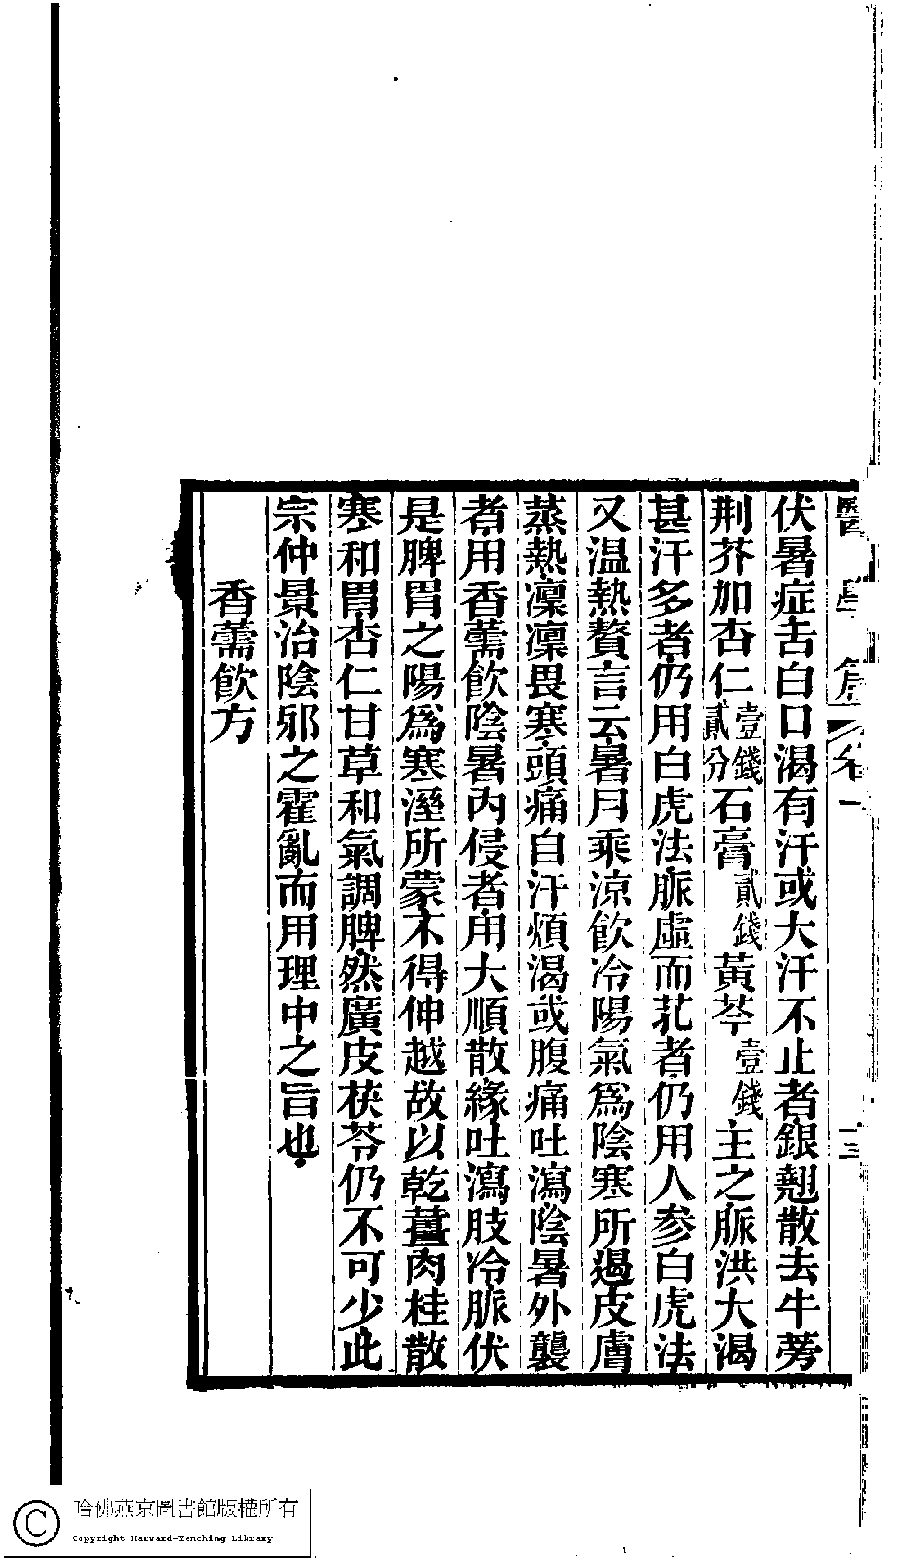 伏暑症舌白口渴有汗或大汗不止者銀翹散去牛蒡
荆芥加杏仁壹錢貳分石膏貳錢黃芩壹錢主之脈洪大渴
甚汗多者仍用白虎法脈虛而芤者仍用人參白虎法
又温熱贅言云暑月乘涼飲冷陽氣爲陰寒所遏皮膚
蒸熱凜凜畏寒頭痛自汗煩渴或腹痛吐瀉陰暑外襲
者用香薷飲陰暑內侵者用大順散緣吐瀉肢冷脈伏
是脾胃之陽爲寒溼所蒙不得伸越故以乾薑肉桂散
寒和胃杏仁甘草和氣調脾然廣皮茯苓仍不可少此
宗仲景治陰邪之霍亂而用理中之旨也
香薷飲方
哈佛燕京圖書館版權所有
Copyright Harvard-Yenching Library